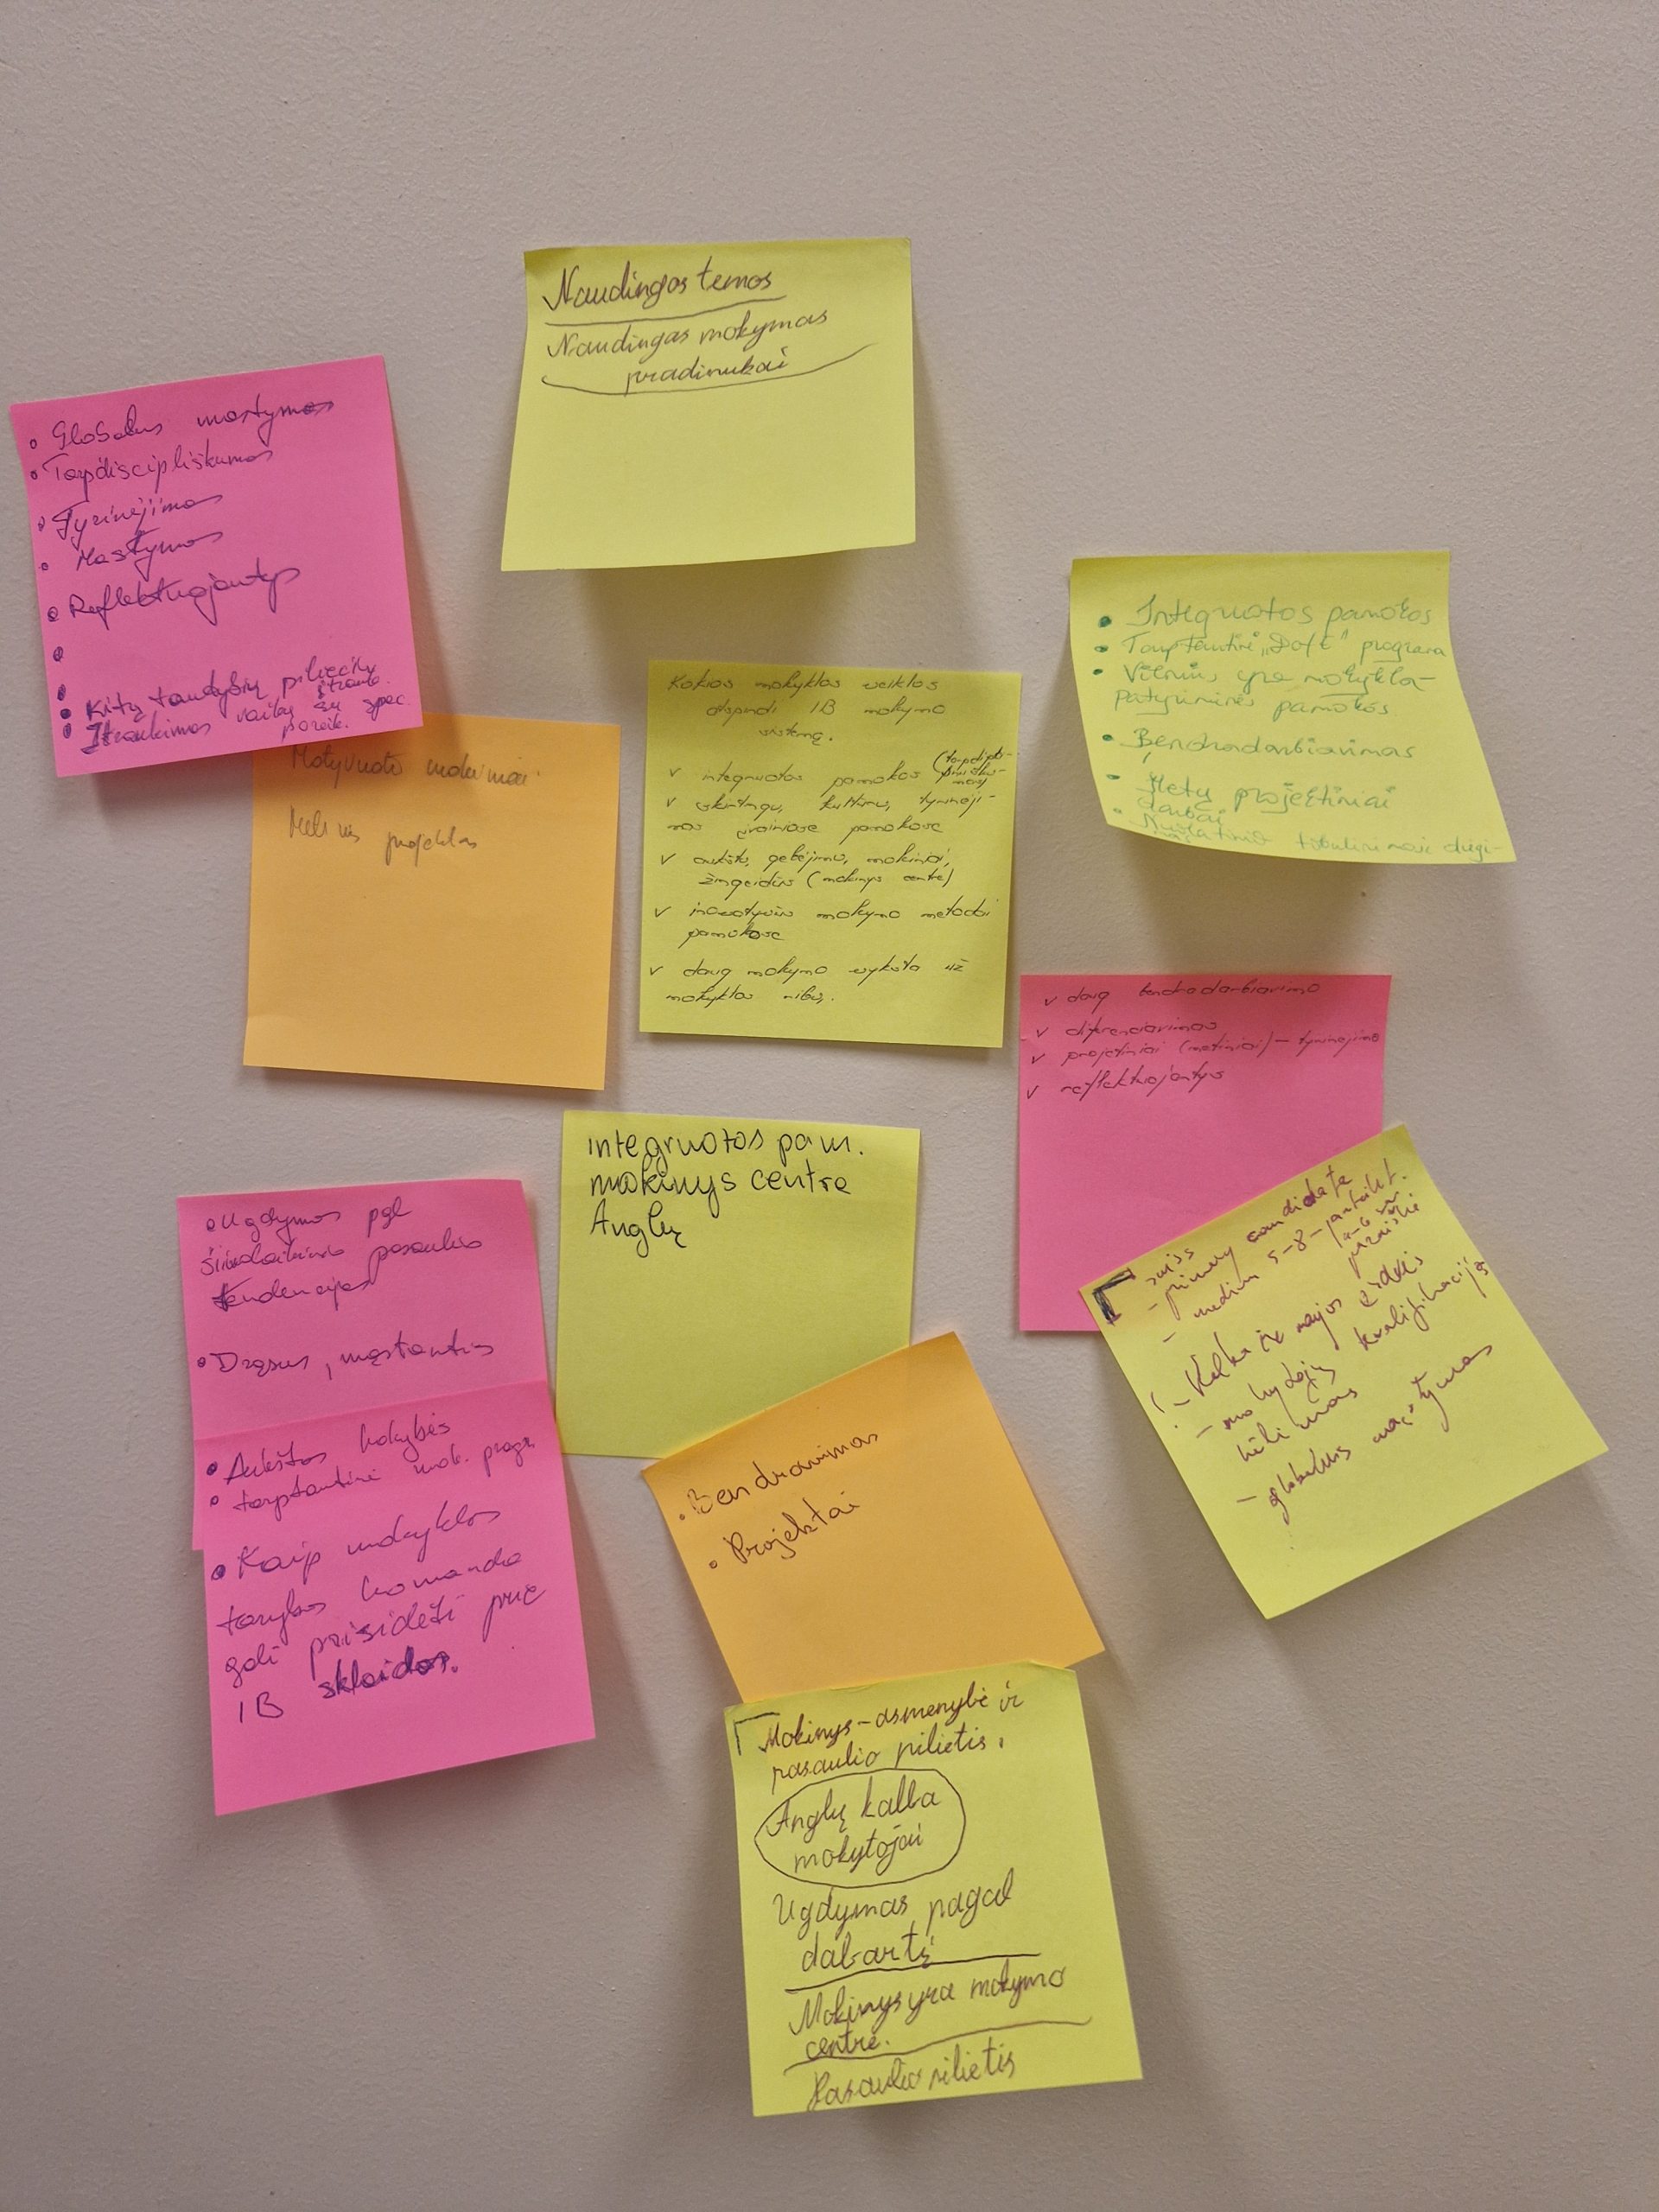 Naudingos temos
Naudingas mokymas
pradinukai
• Globalus mąstymas
• Tarpdiscipliškumas
• Tyrinėjimas
• Mąstymas
• Reflektuojantys
• Kitų tautybių piliečių
įtrauk.
• Įtraukimas vaikų su spec.
poreik.
• Integruotos pamokos
• Tarptautinė programa
• Vilnius yra mokykla-
patyriminės pamokos
• Bendradarbiavimas
• Metų projektiniai
darbai
Motyvuoti mokiniai
projektas
Kokios mokyklos veiklos
atspindi IB mokymo
sistemą.
v integruotos pamokos
v skirtingų kultūrų, tyrinėji-
mas įvairiose pamokose
v aukštų gebėjimų, mokiniai,
žingeidūs (mokinys centre)
v inovatyvūs mokymo metodai
pamokose
v daug mokymo vyksta už
mokyklos ribų.
v daug bendradarbiavimo
v diferencijavimas
v projektiniai (metiniai) – tyrinėjimo
v reflektuojantys
integruotos pam.
mokinys centre
Anglų
• Ugdymas pgl
šiuolaikinio pasaulio
tendencijas
• Drąsus, mąstantis
• Aukštos kokybės
• tarptautinė mok. progr.
• Kaip mokyklos
tarybos komanda
gali prisidėti prie
IB sklaidos.
– primary candidate
– medium 5-8-
– mokytojų kvalifikacijos
kėlimas
– globalus mąstymas
• Bendravimas
• Projektai
Mokinys – asmenybė ir
pasaulio pilietis.
Anglų kalba
mokytojai
Ugdymas pagal
dabartį
Mokinys yra mokymo
centre.
Pasaulio pilietis